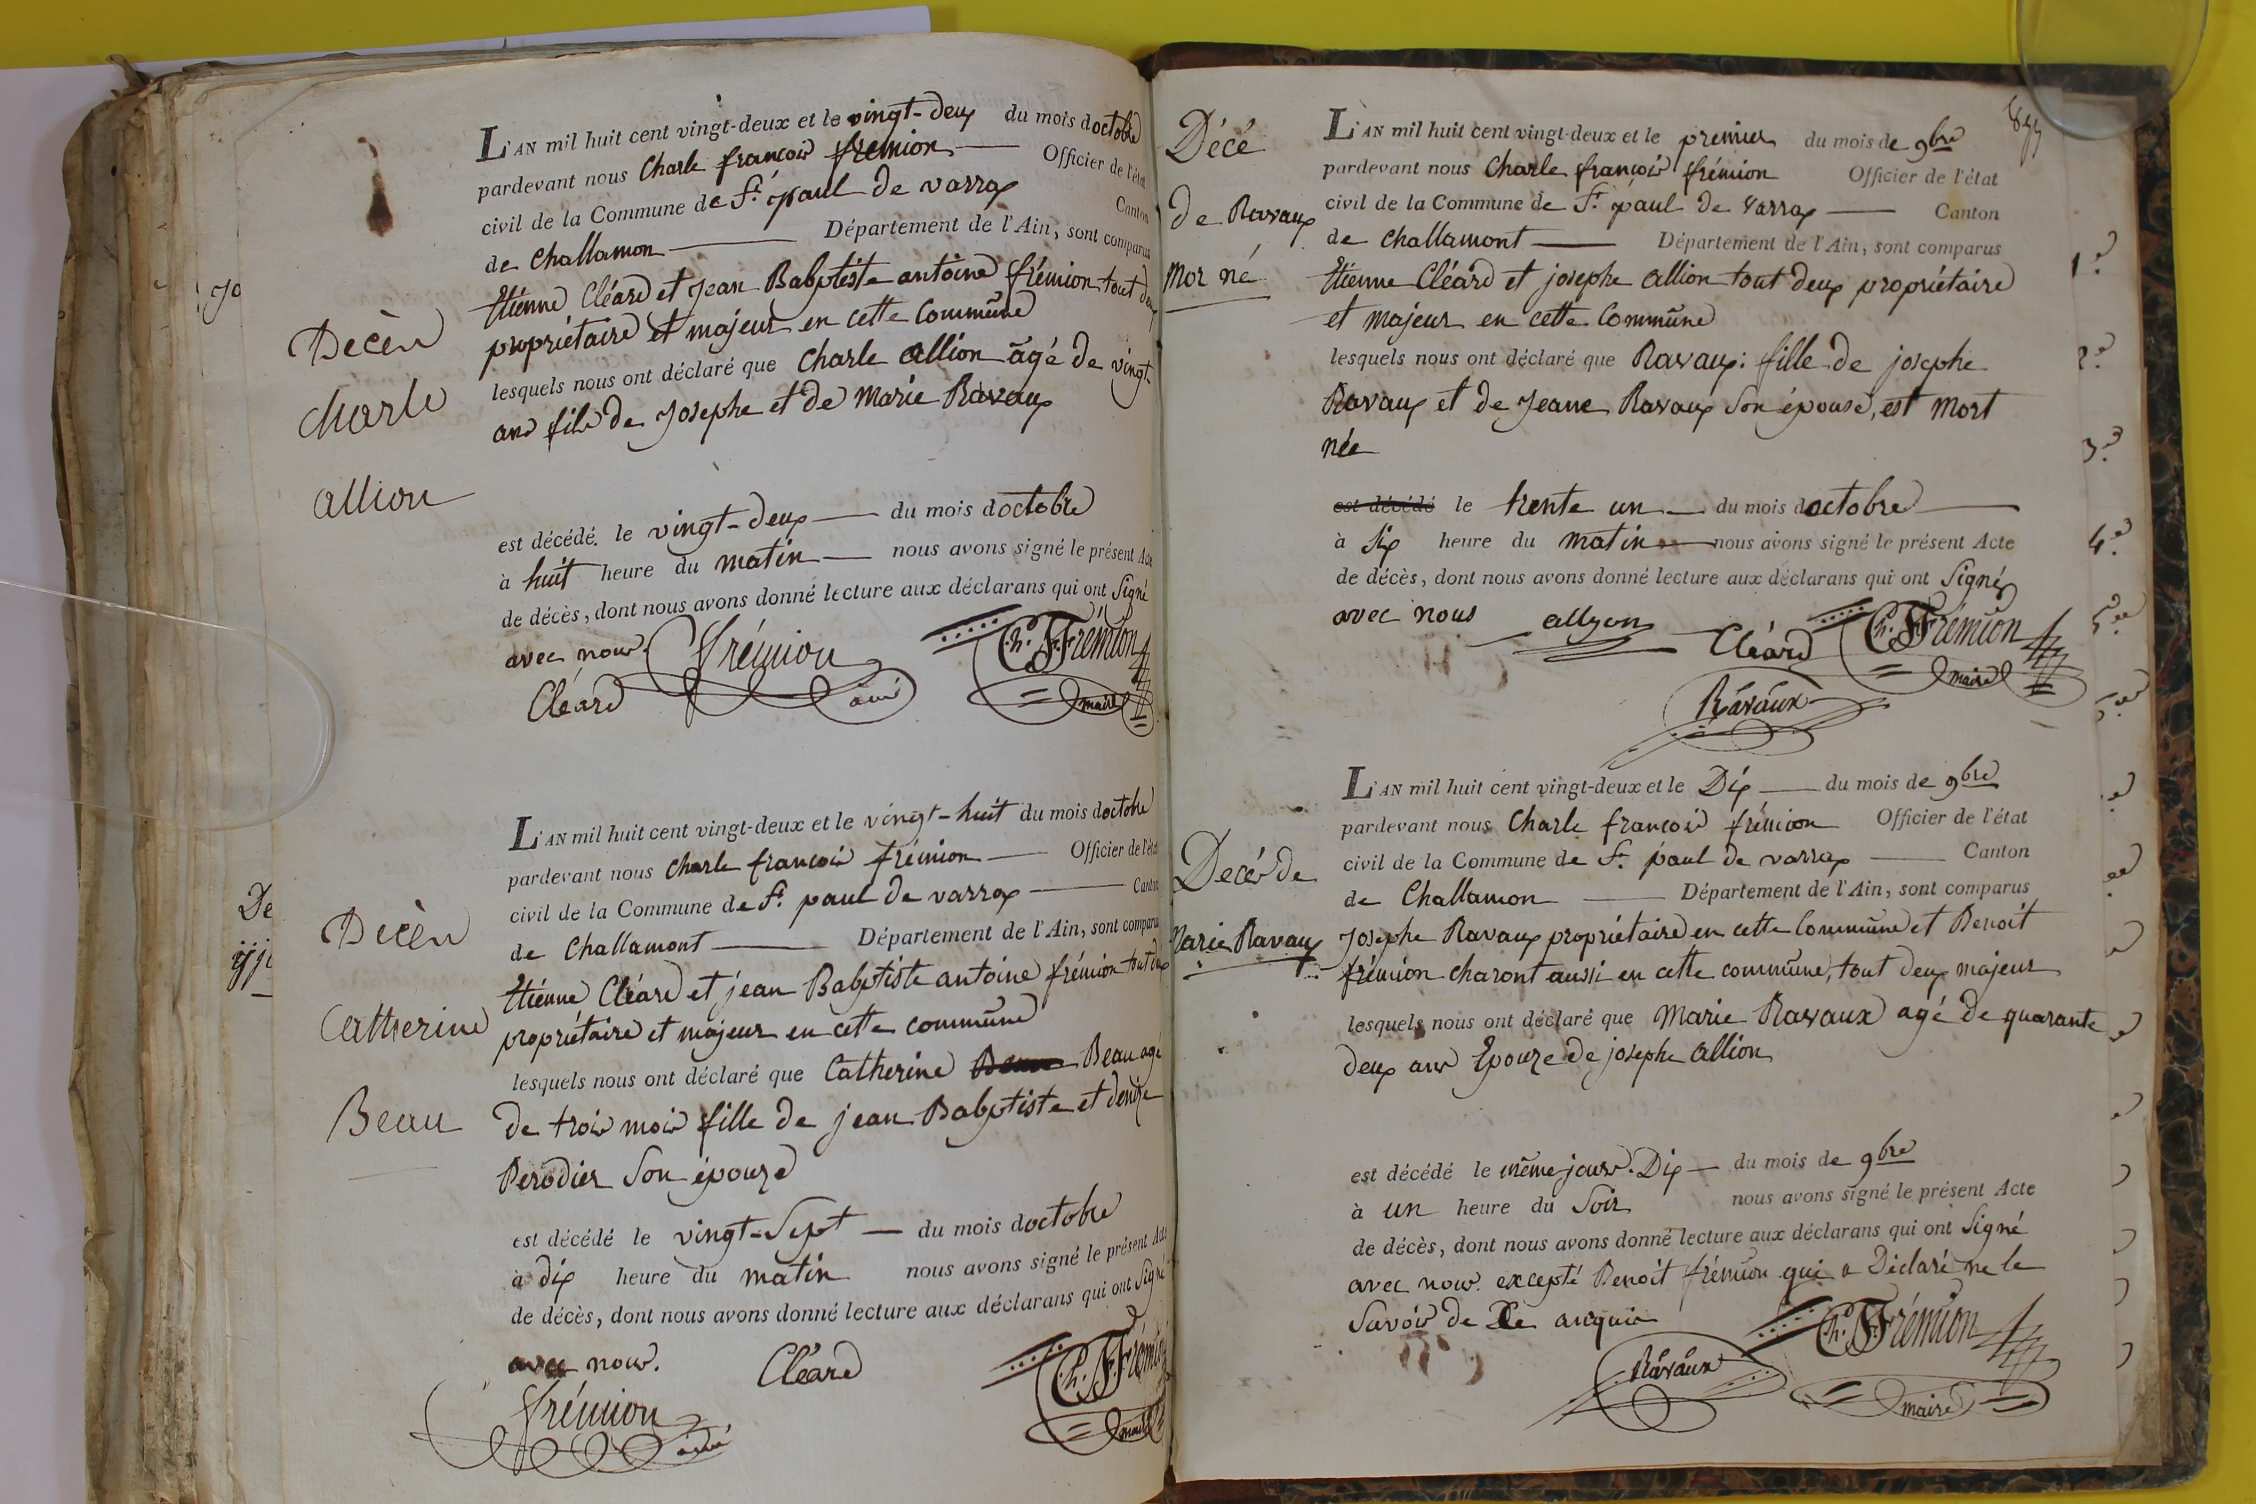 Décès
charle
allion
L'AN mil huit cent vingt-deux et le vingt-deux du mois doctobre
pardevant nous Charle françois frémion Officier de l'état
civil de la Commune de St. paul de varrax Canton
de Challamon Département de l'Ain, sont comparus
Etienne Cléard et Jean Babptiste antoine frémion tout deux
propriétaire et majeur en cette Commune
lesquels nous ont déclaré que Charle allion agé de vingt
ans fils de Josephe et de Marie Ravaux
est décédé le vingt-deux du mois doctobre
à huit heure du matin nous avons signé le présent Acte
de décès, dont nous avons donné lecture aux déclarans qui ont signé
avec nous. frémion ainé Ch. F. Frémion
Cléard maire
Décès
Catherine
Beau
L'AN mil huit cent vingt-deux et le vingt-huit du mois doctobre
pardevant nous Charle françois frémion Officier de l'état
civil de la Commune de St. paul de varrax Canton
de Challamont Département de l'Ain, sont comparus
Etienne Cléard et jean Babptiste antoine frémion tout deux
propriétaire et majeur en cette commune
lesquels nous ont déclaré que Catherine Beau agé
de trois mois fille de jean Babptiste et denize
Perodier son épouze
est décédé le vingt-sept du mois doctobre
à dix heure du matin nous avons signé le présent Acte
de décès, dont nous avons donné lecture aux déclarans qui ont signé
avec nous. Cléard Ch. F. Frémion
frémion ainé maire
Décé
de Ravaux
Mor né
L'AN mil huit cent vingt-deux et le premier du mois de 9bre
pardevant nous Charle françois frémion Officier de l'état
civil de la Commune de St. paul de varrax Canton
de Challamont Département de l'Ain, sont comparus
Etienne Cléard et josephe allion tout deux propriétaire
et majeur en cette Commune
lesquels nous ont déclaré que Ravaux: fille de josephe
Ravaux et de Jeane Ravaux son épouse, est mort
née
est décédé le trente un du mois doctobre
à six heure du matin nous avons signé le présent Acte
de décès, dont nous avons donné lecture aux déclarans qui ont signé
avec nous allyon Cléard Ch. F. Frémion
maire
Ravaux
Decés de
Marie Ravaux
L'AN mil huit cent vingt-deux et le Dix du mois de 9bre
pardevant nous Charle françois frémion Officier de l'état
civil de la Commune de St. paul de varrax Canton
de Challamon Département de l'Ain, sont comparus
Josephe Ravaux propriétaire en cette Commune et Benoit
frémion charont aussi en cette commune, tout deux majeur
lesquels nous ont déclaré que Marie Ravaux agé de quarante
deux ans Epouze de josephe allion
est décédé le même jour. Dix du mois de 9bre
à un heure du soir nous avons signé le présent Acte
de décès, dont nous avons donné lecture aux déclarans qui ont signé
avec nous. excepté Benoit frémion qui a Déclaré ne le
savoir de ce anquis
Ravaux Ch. F. Frémion
maire
1.e
2.e
3.e
4.e
De